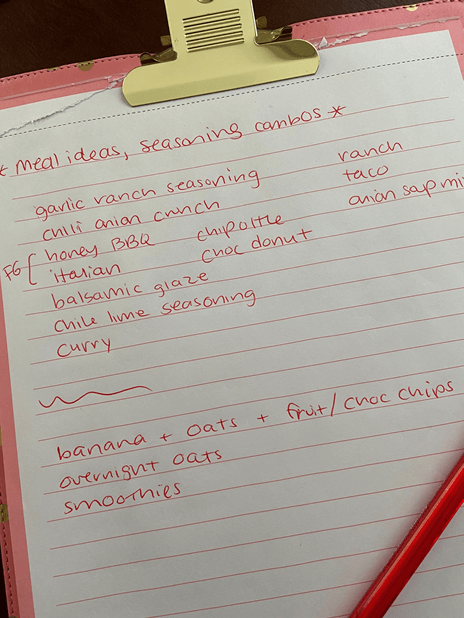 * meal ideas, seasoning combos *
garlic ranch seasoning ranch
chilli onion crunch taco
FG [ honey BBQ chipoltle onion soup mi
italian choc donut
balsamic glaze
chile lime seasoning
curry
banana + oats + fruit/choc chips
overnight oats
smoothies